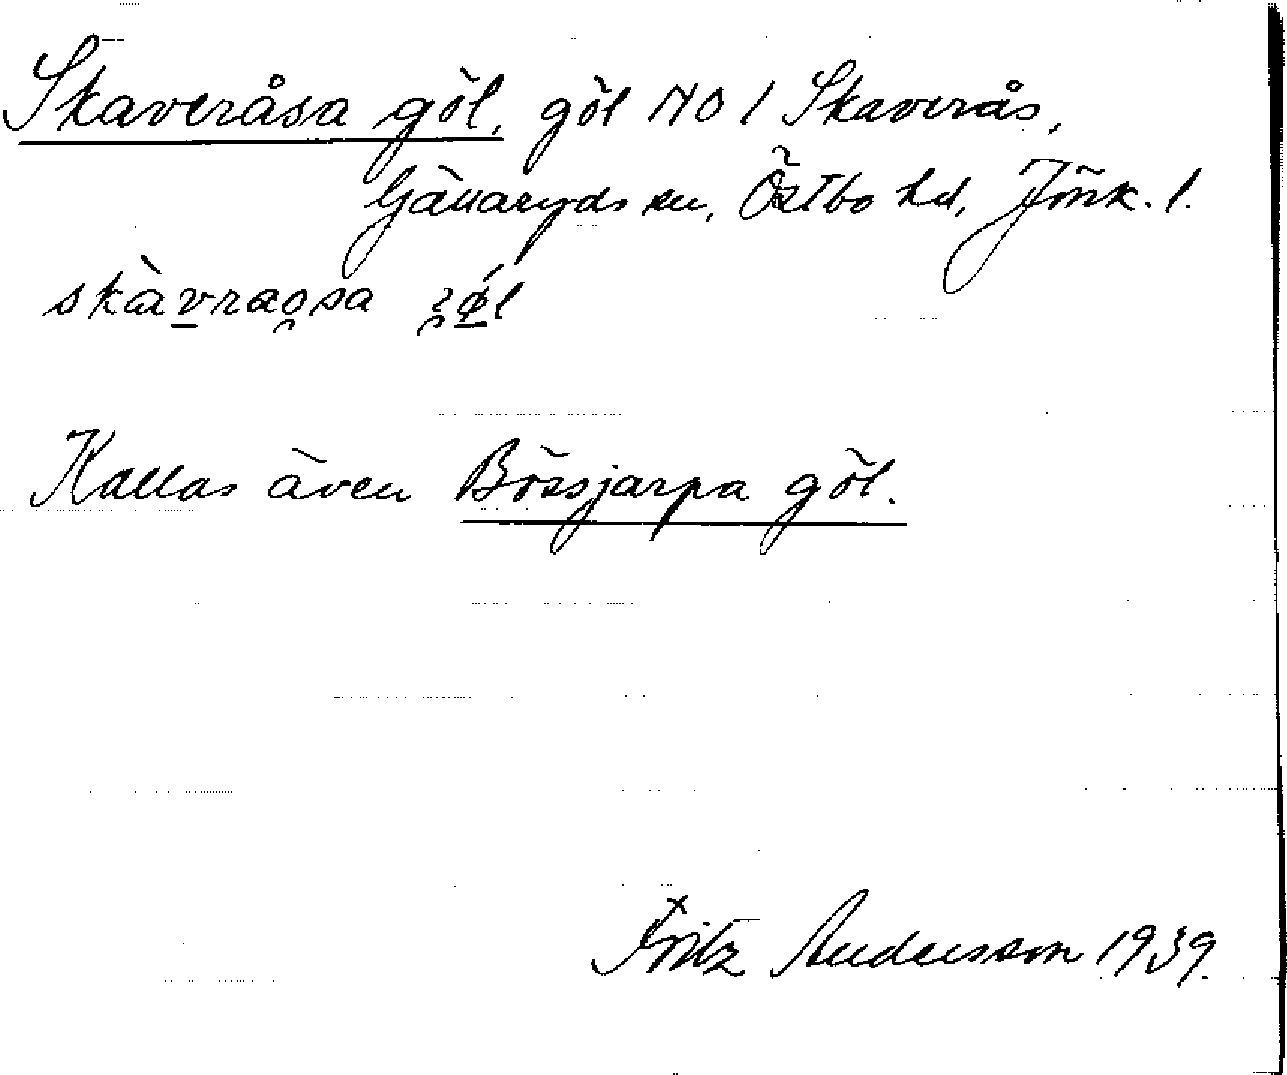 Skaveråsa göl, göl NO 1 Skaverås,
Gällaryds sn, Östbo hd, Jönk. l.
Kallas även Bössjarpa göl.
Fritz Andersson 1939.